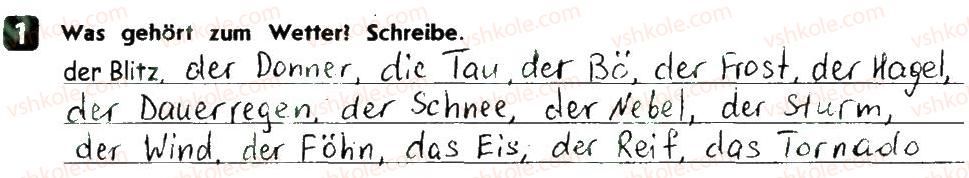 1 Was gehört zum Wetter? Schreibe.
der Blitz, der Donner, die Tau, der Bö, der Frost, der Hagel,
der Dauerregen, der Schnee, der Nebel, der Sturm,
der Wind, der Föhn, das Eis, der Reif, das Tornado